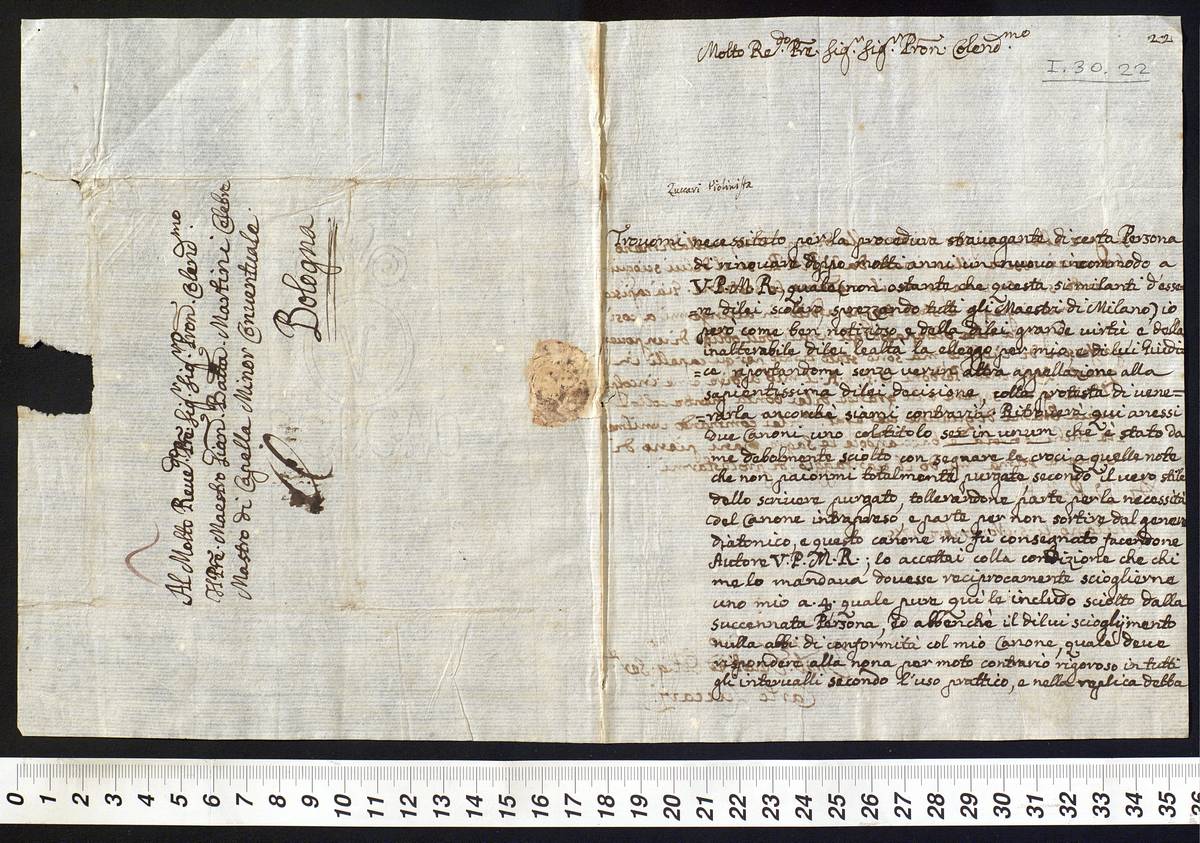 Al Molto Revedo Pre Sigr Sigr Pron Colendmo
Il Pre Maestro Giem Batta Martini Celebre
Mastro di Capella Minor Conventuale.
Bologna
22
I. 30. 22
Molto Redo. Pre Sigr. Sigr Pron Colendmo.
Zuccari Violinista
Trovomi necessitato per la procedura stravagante di certa Persona
di rinovare doppo molti anni un nuovo incommodo a
V. P. M. R., quale (non ostante che questa si milanti d'esse-
re di lei scolaro sprezzando tutti gli Maestri di Milano) io
però come ben notizioso e della di lei grande virtù e della
inalterabile di lei lealtà la elleggo per mio e di lui Giudi=
=ce, riportandomi senza verun altra appellazione alla
sapientissima di lei decisione, colla protesta di vene=
=rarla ancorchè siami contraria. Ritroverà qui anessi
due Canoni uno col titolo sex in unum che è stato da
me debolmente sciolto con segnare le croci a quelle note
che non paionmi totalmente purgate secondo il vero stile
dello scrivere purgato, tollerandone parte per la necessità
del Canone intrapreso, e parte per non sortire dal genere
diatonico, e questo canone mi fù consegnato facendone
Autore V. P. M. R.; lo accettai colla condizione che chi
me lo mandava dovesse reciprocamente sciogliernе
uno mio a 4: quale pure qui le includo sciolto dalla
succennata Persona, ed abbenchè il di lui scioglimento
nulla abbi di conformità col mio Canone, quale deve
rispondere alla nona per moto contrario rigoroso in tutti
gli intervalli secondo l'uso prattico, e nella replica debba